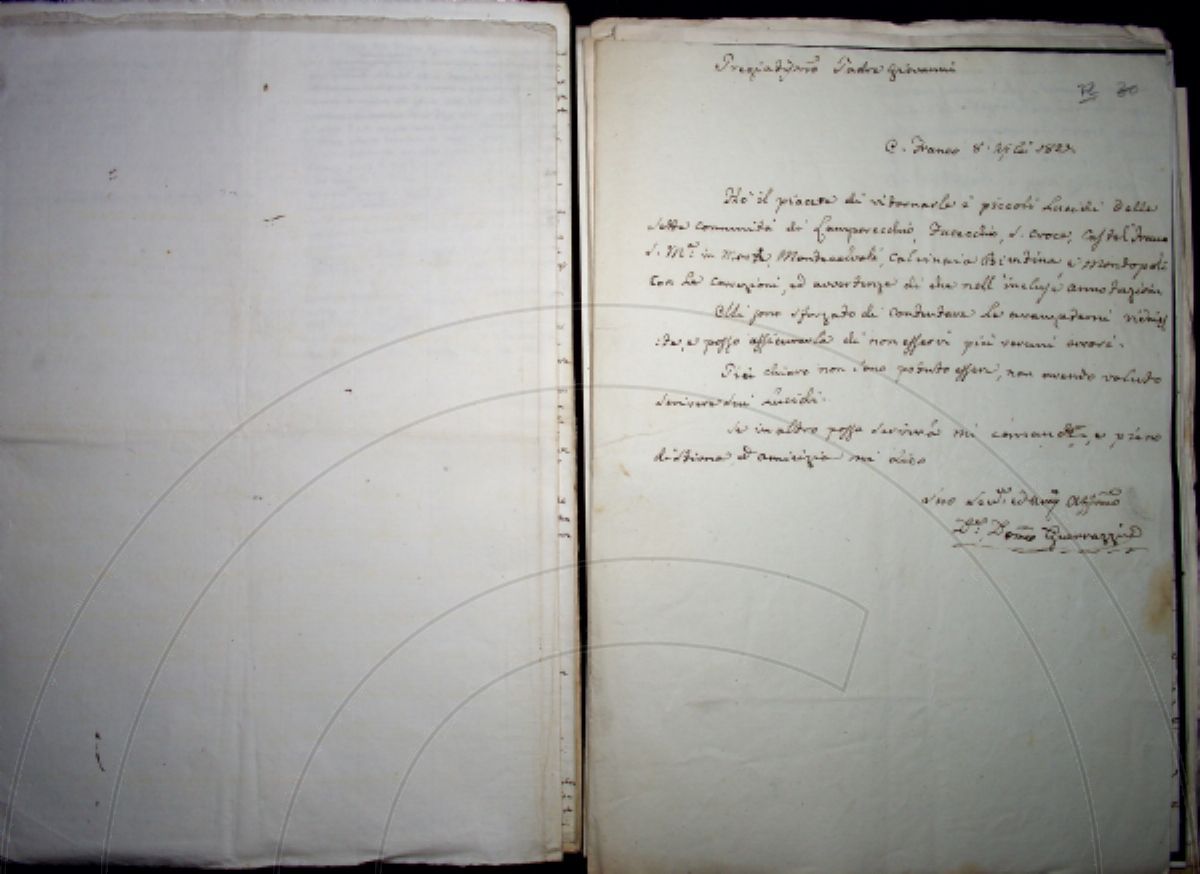 Pregiatissmo Padre Giovanni
20
C. Franco 8. 182
Ho il piacere di ritornarle i piccoli Lucidi delle
sette comunità di Lamporecchio, Fucecchio, S. Croce, Castel Franco
S. Ma. in Monte, Montecalvoli, Calcinaia Bientina e Montopoli
con le correzioni, ed avvertenze di che nell' incluse annotazioni
sono sforzato di contentare le
e posso assicurarla di non esservi più veruni errori.
Più chiaro non sono potuto essere, non avendo voluto
scrivere sui Lucidi.
Se in altro posso servirla mi comandi, e pieno
di stima, ed amicizia mi dico
suo
Dr. Domco Guerrazzi